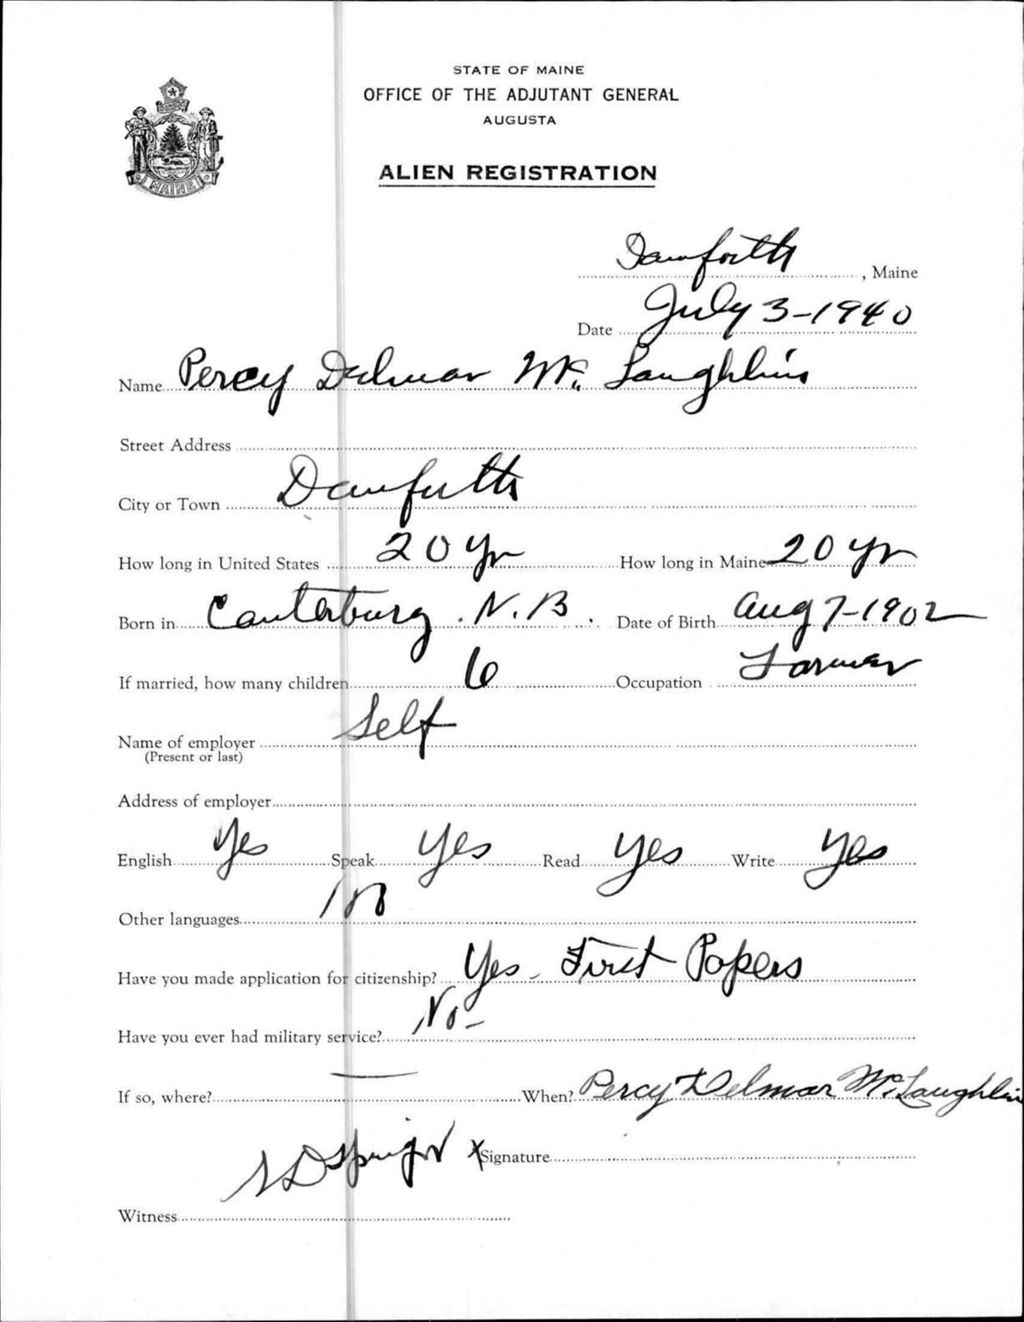 STATE OF MAINE
OFFICE OF THE ADJUTANT GENERAL
AUGUSTA
ALIEN REGISTRATION
MAINE
Danforth, Maine
Date July 3-1940
Name Percy Delmar Mc. Laughlin
Street Address
City or Town Danforth
How long in United States 20 yr How long in Maine 20 yr
Born in Canterburg. N.B. Date of Birth Aug 7-1902
If married, how many children 6 Occupation Farmer
Name of employer Self
(Present or last)
Address of employer
English Yes Speak Yes Read Yes Write Yes
Other languages No
Have you made application for citizenship? Yes - First Papers
Have you ever had military service? No -
If so, where? — When? Percy Delmar McLaughlin
X Signature
Witness